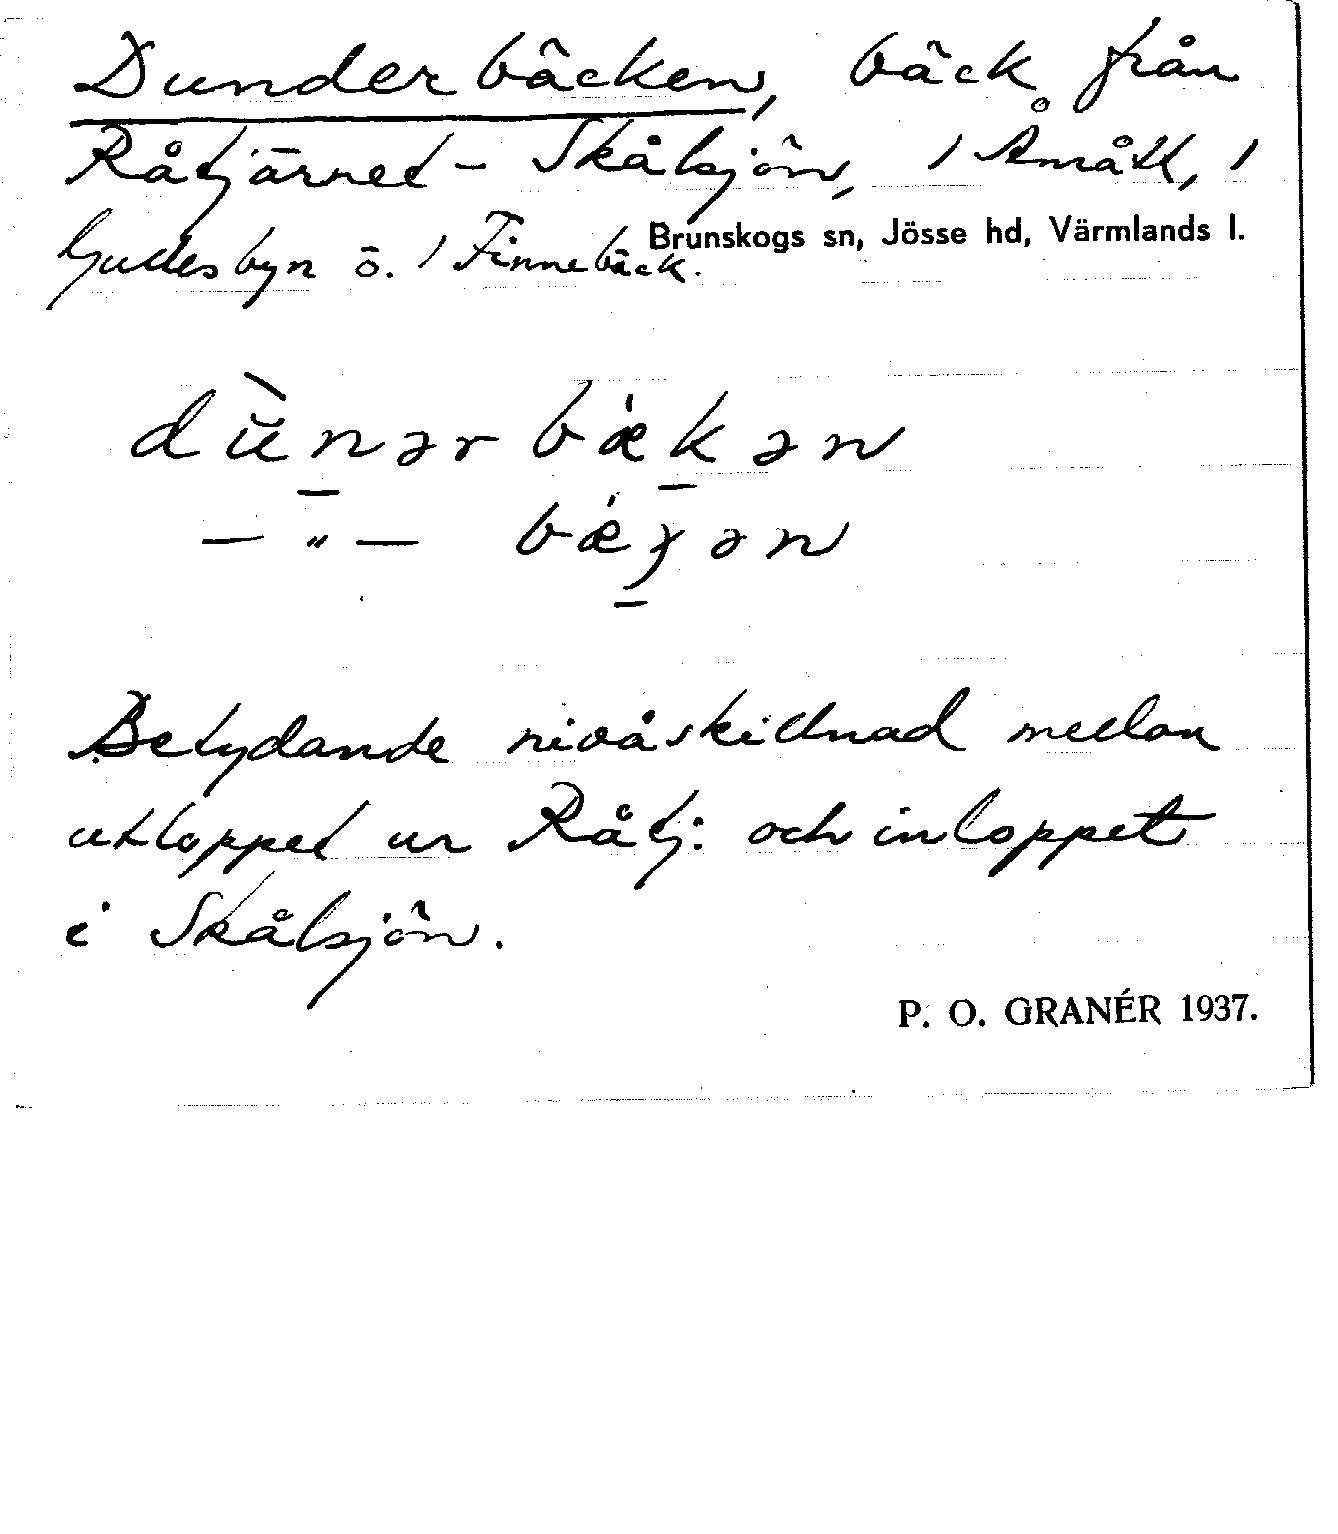 Dunderbäcken, bäck från
Råtjärnet - Skålsjön, / Åmått, /
Gullesbyn ö. / Finnebäck.
Brunskogs sn, Jösse hd, Värmlands l.
dùnər bǽkən
— " — bǽʒən
Betydande nivåskillnad mellan
utloppet ur Råtj: och inloppet
i Skålsjön.
P. O. GRANÉR 1937.